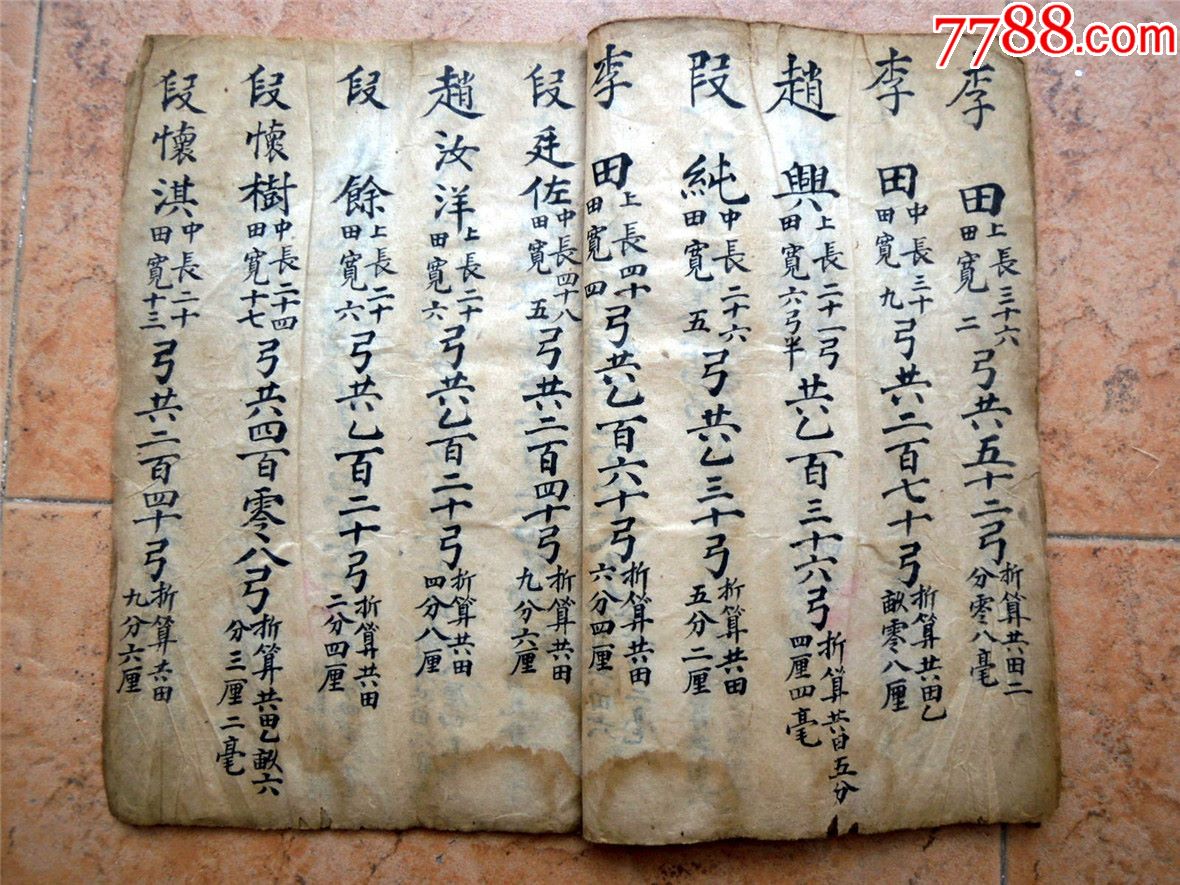 7788.com
李田上長三十六田寬二弓共五十二弓折算共田二分零八毫
李田中長三十田寬九弓共二百七十弓折算共田乙畝零八厘
趙興上長二十一弓田寬六弓半共乙百三十六弓折算共田五分四厘四毫
段純中長二十六田寬五弓共乙三十弓折算共田五分二厘
李田上長四十田寬四弓共乙百六十弓折算共田六分四厘
段廷佐中長四十八田寬五弓共二百四十弓折算共田九分六厘
趙汝洋上長二十田寬六弓共乙百二十弓折算共田四分八厘
段餘上長二十田寬六弓共乙百二十弓折算共田二分四厘
段懷樹中長二十四田寬十七弓共四百零八弓折算共田乙畝六分三厘二毫
段懷淇中長二十田寬十三弓共二百四十弓折算共田九分六厘